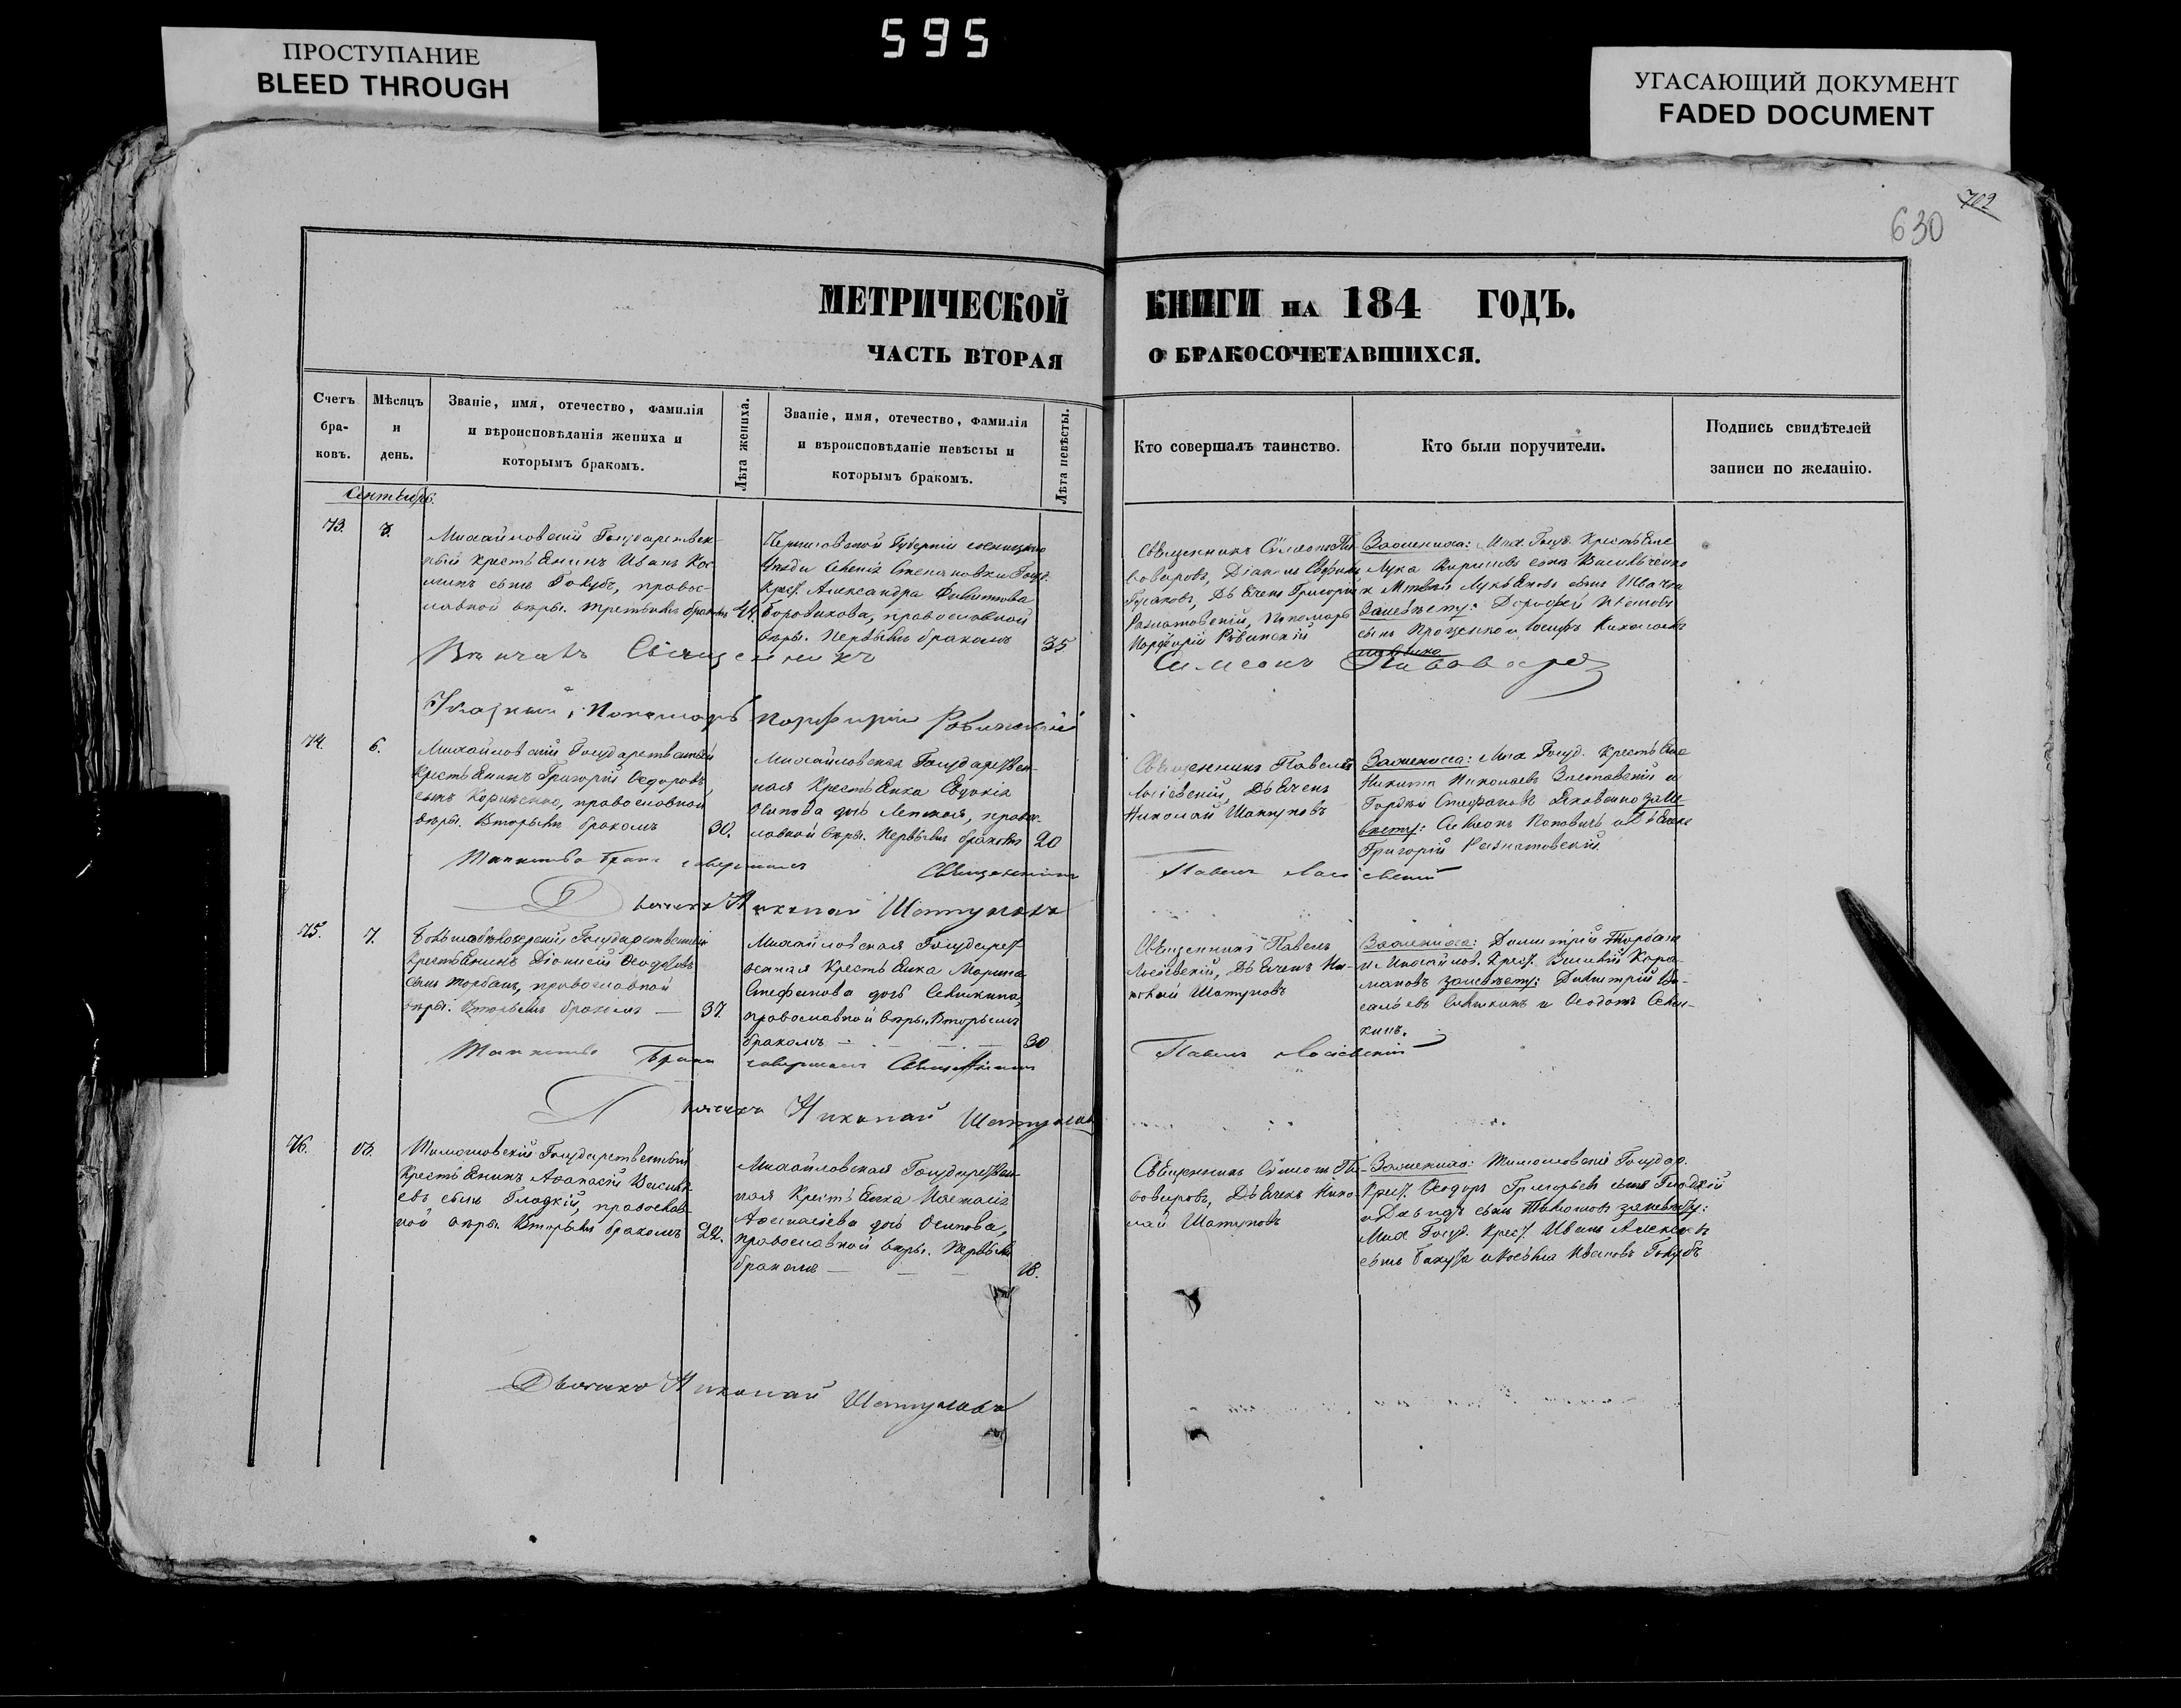 595
ПРОСТУПАНИЕ
BLEED THROUGH
УГАСАЮЩИЙ ДОКУМЕНТ
FADED DOCUMENT
702
630
МЕТРИЧЕСКОЙ КНИГИ НА 184 ГОДЪ.
ЧАСТЬ ВТОРАЯ О БРАКОСОЧЕТАВШИХСЯ.
Счетъ
бра-
ковъ.
Мѣсяцъ
и
день.
Званіе, имя, отечество, фамилія
и вѣроисповѣданія жениха и
которымъ бракомъ.
Лѣта жениха.
Званіе, имя, отечество, фамилія
и вѣроисповѣданіе невѣсты и
которымъ бракомъ.
Лѣта невѣсты.
Кто совершалъ таинство.
Кто были поручители.
Подпись свидѣтелей
записи по желанію.
Сентябрь.
73.
Михайловскій Государствен-
ный крестьянинъ Иванъ Кос-
сынъ Голубъ, правос-
лавной вѣры. третьимъ бракомъ
Черниговской Губерніи
Степановки Госуд.
крест. Александра Филипова
Боровикова, православной
вѣры. Первымъ бракомъ
35
Священникъ Симеонъ Пи-
воваровъ, Діаконъ
Дьячекъ Григорій
Разнатовскій, Пономарь
Порфирій Рѣвинскій
Зажениха: Мих. Госуд. Крестьяне
Лука Кириловъ сынъ Василь­ченко
и Матвѣй Лукьяновъ сынъ
Заневѣсту: Дорофей
сынъ Проценко и Іосифъ
Вѣнчалъ Священникъ Симеонъ Пивоваровъ
Пономарь Порфирій Рѣвинскій
74.
6.
Михайловскій Государственный
крестьянинъ Григорій Ѳедоровъ
сынъ Корниенко, православной
вѣры. Вторымъ бракомъ
30.
Михайловская Государствен-
ная крестьянка Евдокія
Осипова дочь Лепская, правос-
лавной вѣры. Первымъ бракомъ
20
Священникъ Павелъ
Лосіевскій, Дьячекъ
Николай Шатуновъ
Зажениха: Мих. Госуд. крестьяне
Никита Николаевъ Заставскій и
Гордѣй Стефановъ Яковенко зане-
вѣсту: Симеонъ Поповичъ и Дьячекъ
Григорій Разнатовскій.
Таинство брака совершалъ Священникъ Павелъ Лосіевскій
Дьячекъ Николай Шатуновъ
75.
7.
Государственный
крестьянинъ Діонисій Ѳеодоровъ
сынъ Торбанъ, православной
вѣры. Вторымъ бракомъ —
37.
Михайловская Государст-
венная крестьянка Марина
Стефанова дочь Семыкина,
православной вѣры. Вторымъ
бракомъ
30
Священникъ Павелъ
Лосіевскій, Дьячекъ Ни-
колай Шатуновъ
Зажениха: Димитрій Торбанъ
и Михайлов. крест. Василій Кара-
мановъ заневѣсту: Димитрій Ва-
сильевъ Семыкинъ и Ѳеодотъ Семы-
кинъ.
Таинство Брака совершалъ Священникъ Павелъ Лосіевскій
Дьячекъ Николай Шатуновъ
76.
Тимошовскій Государственный
крестьянинъ Аѳанасій Василь-
евъ сынъ Гладкій, православ-
ной вѣры. Вторымъ бракомъ
22.
Михайловская Государствен-
ная крестьянка Настасія
Аѳанасіева дочь Осипова,
православной вѣры. Первымъ
бракомъ
18.
Священникъ Симеонъ Пи-
воваровъ, Дьячекъ Нико-
лай Шатуновъ
Зажениха: Тимошовскіе Государ.
крест. Ѳеодоръ Григорьевъ сынъ Гладкій
и Давидъ сынъ Тимошовъ заневѣсту:
Мих Госуд. крест. Иванъ Алексѣевъ
сынъ Бакута и Косьма Ивановъ Голубъ
Дьячекъ Николай Шатуновъ